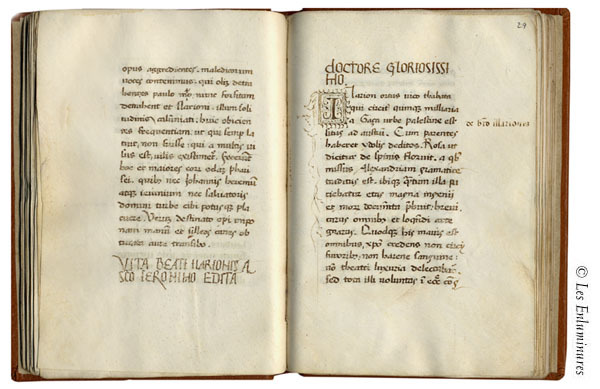 opus aggredientes. maledicorum
uoces contemnimus. qui olim detra
hentes paulo m̅o. nunc forsitam
detrahent et Ilarioni. illum soli
tudinis calumniati: huic obicien
tes frequentiam. ut qui semp la
tuit, non fuisse: qui a multis ui
sus est, uilis existimet̅. Fecerunt
hoc et maiores eorum phari
sei. quibus nec Johannis heremum
atque ieiunium nec saluatoris
domini turbe cibi potusque pla
cuere. Verum destinato operi impo
nam manum et
aure transibo.
VITA BEATI ILARIONIS A
SCO IERONIMO EDITA
29
DOCTORE GLORIOSISSI
MO.
Ilarion ortus uico thabata
qui circit̅ quinque milliaria
a Gaza urbe palestine est
situs ad austrum. Cum parentes
haberet ydolis deditos. Rosa ut
dicitur de spinis floruit. a quibus
missus Alexandriam gramatico
traditus est. ibique
magna ingenii
et morum documenta prebuit: breui
carus omnibus et loquendi arte
gnarus. Quodque his maius est
omnibus, xpo credens non circi
furoribus, non harene sanguine:
non theatri luxuria delectabat̅.
sed tota illi uoluntas in
de bto Ilarione
© Les Enluminures